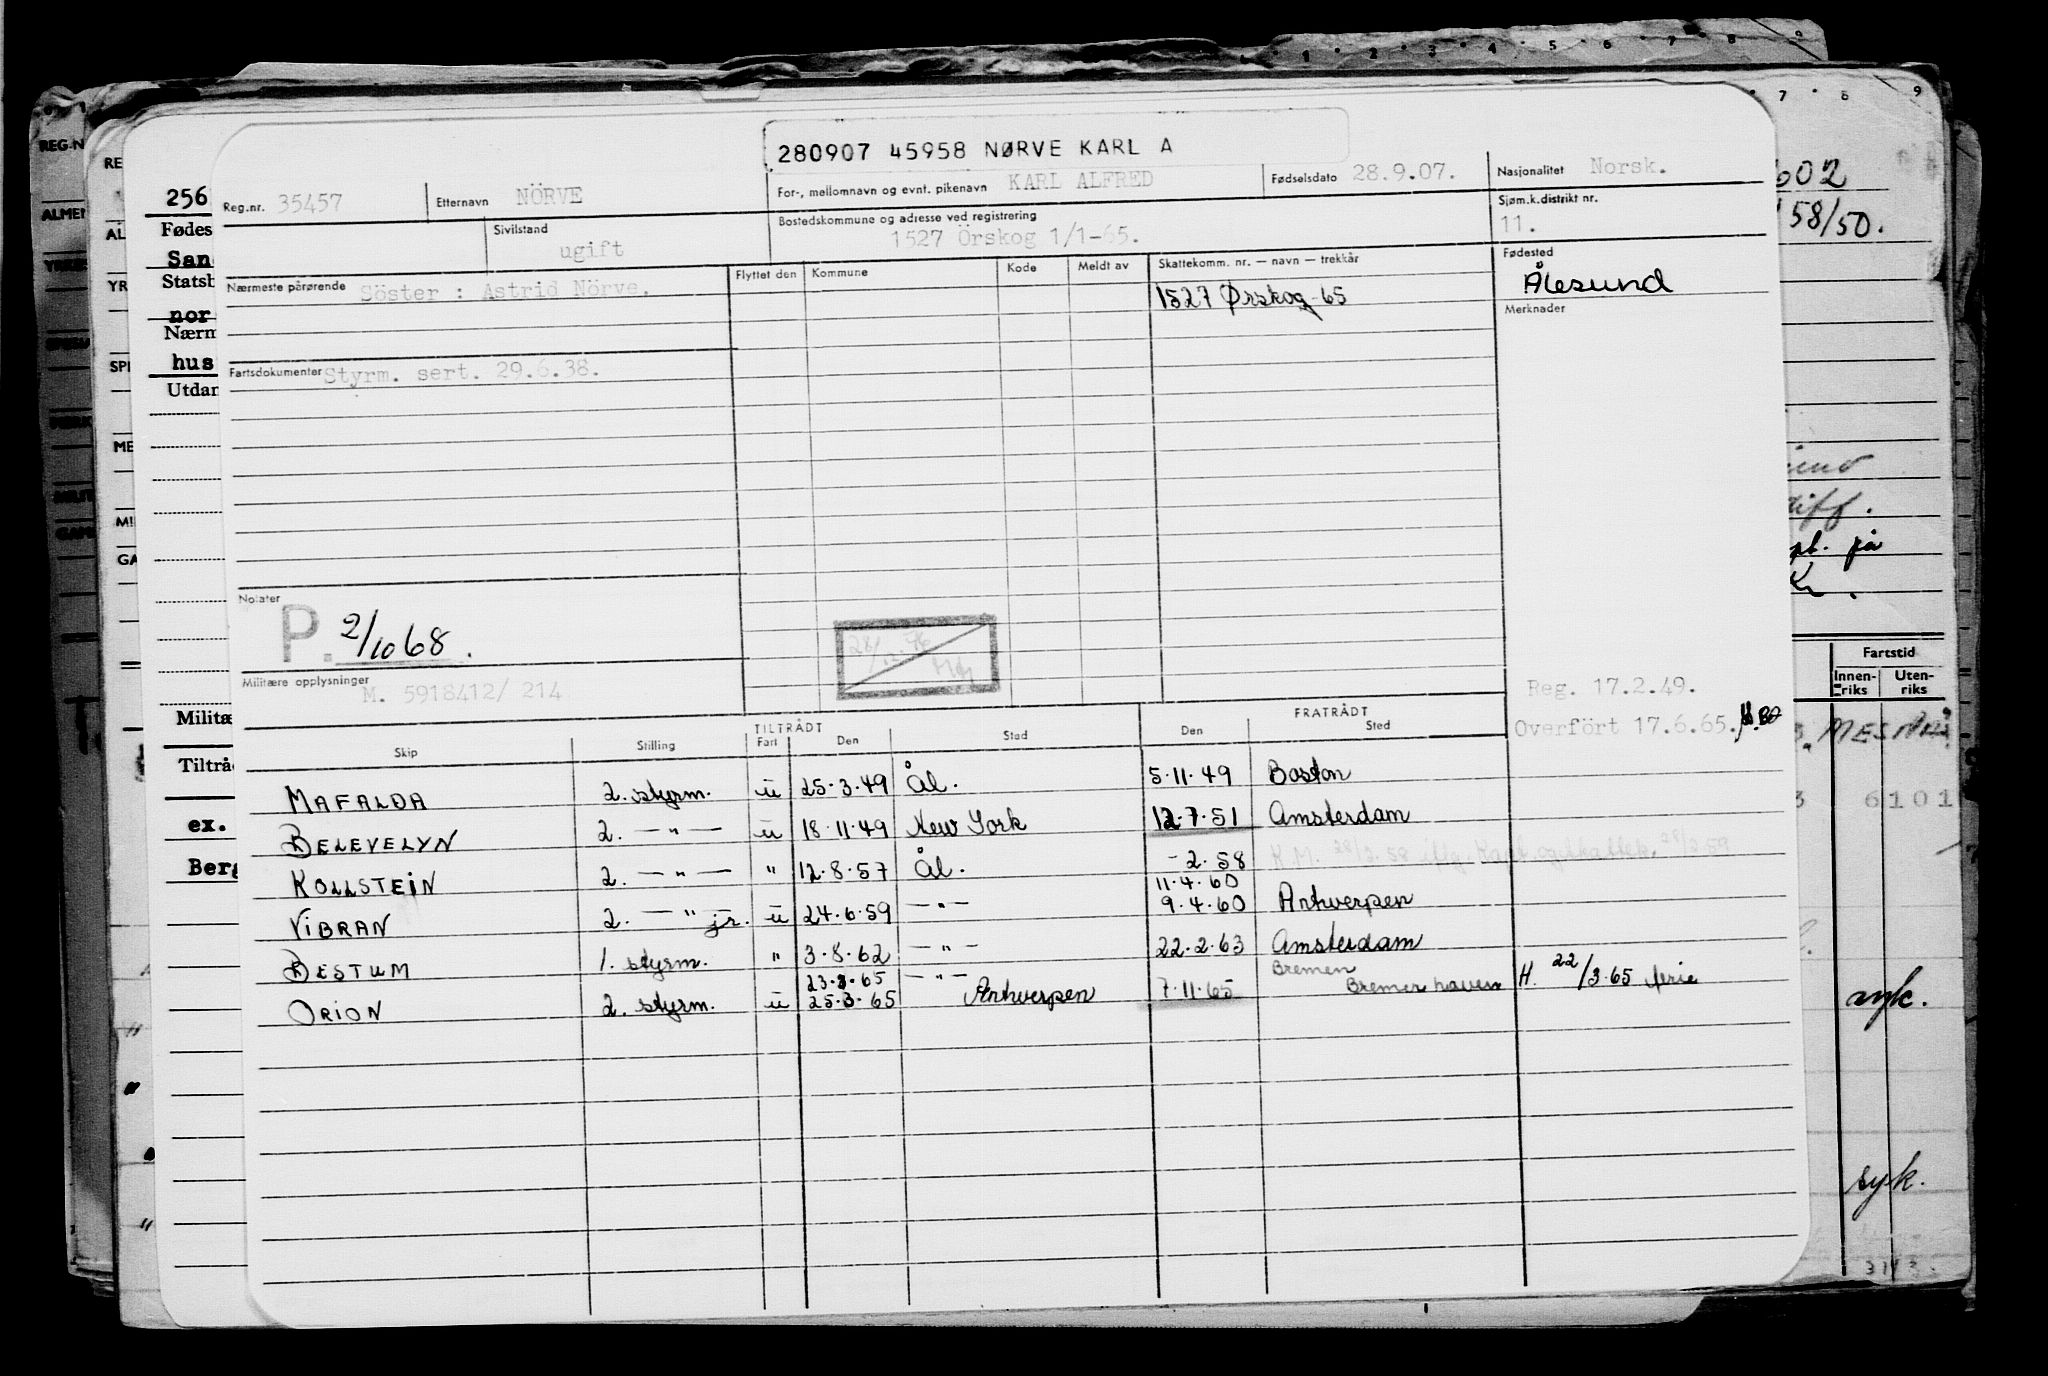 280907 45958 NØRVE KARL A
Reg.nr. 35457 Etternavn NÖRVE For-, mellomnavn og evnt. pikenavn KARL ALFRED Fødselsdato 28.9.07. Nasjonalitet Norsk.
Sivilstand ugift Bostedskommune og adresse ved registrering 1527 Örskog 1/1-65. Sjøm.k.distrikt nr. 11.
Nærmeste pårørende Söster : Astrid Nörve. Flyttet den Kommune Kode Meldt av Skattekomm. nr. — navn — trekkår Fødested Ålesund
1527 Ørskog-65 Merknader
Fartsdokumenter Styrm. sert. 29.6.38.
Notater
P. 2/10 68.
28/12-76
Militære opplysninger M. 5918412/ 214
Reg. 17.2.49.
Overfört 17.6.65.
TILTRÅDT FRATRÅDT
Skip Stilling Fart Den Sted Den Sted
MAFALDA 2. styrm. u 25.3.49 Ål. 5.11.49 Boston
BELEVELYN 2. —"— u 18.11.49 New York 12.7.51 Amsterdam
KOLLSTEIN 2. —"— " 12.8.57 Ål. -2.58 K.M. 28/2.58
11.4.60
VIBRAN 2. —"— jr. u 24.6.59 —"— 9.4.60 Antwerpen
BESTUM 1. styrm. " 3.8.62 —"— 22.2.63 Amsterdam
23.3.65 —"— Bremen
ORION 2. styrm. u 25.3.65 Antwerpen 7.11.65 Bremerhaven H. 22/3.65 ferie
256
Fødes
San
Statsb
nor
Nærm
hus
Utdan
Militæ
Tiltråd
ex.
Berg
REG.N
RE
ALMEN
AL
YR
SPE
ME
MI
GA
602
58/50.
diff.
på
K.
Fartstid
Innen-riks Uten-riks
MESNA
6101
syk.
syk.